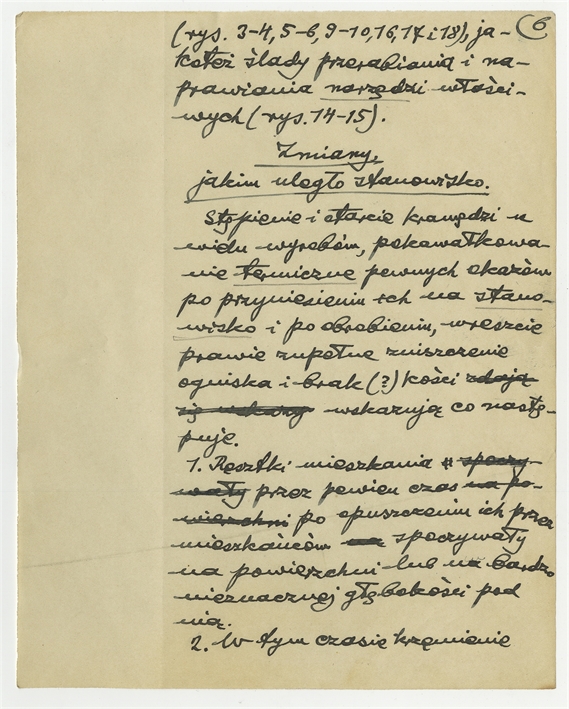 6
(rys. 3-4, 5-6, 9-10, 16, 17 i 18), ja-
koteż ślady przerabiania i na-
prawiania narzędzi właści-
wych (rys. 14-15).
Zmiany,
jakim uległo stanowisko.
Stępienie i starcie krawędzi u
wielu wyrobów, pokawałkowa-
nie termiczne pewnych okazów
po przyniesieniu ich na stano-
wisko i po obrobieniu, wreszcie
prawie zupełne zniszczenie
ogniska i brak (?) kości zdają
się wskazy wskazują co nastę-
puje.
1. Resztki mieszkania spoczy-
wały przez pewien czas na po-
wierzchni po opuszczeniu ich przez
mieszkańców spoczywały
na powierzchni lub na bardzo
nieznacznej głębokości pod
nią.
2. W tym czasie krzemienie